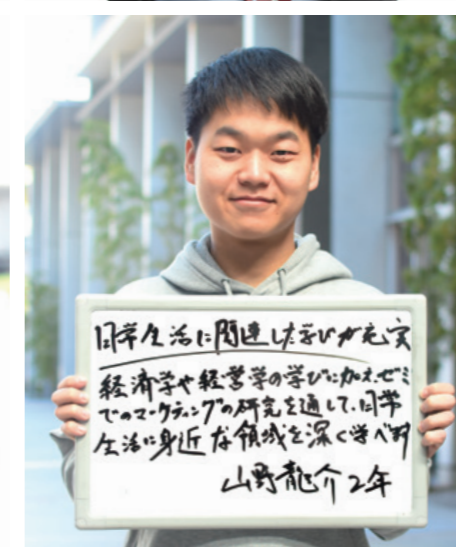 日常生活に関連した学びが充実
経済学や経営学の学びに加え、ゼミ
でのマーケティングの研究を通して、日常
生活に身近な領域を深く学べます
山野龍介 2年